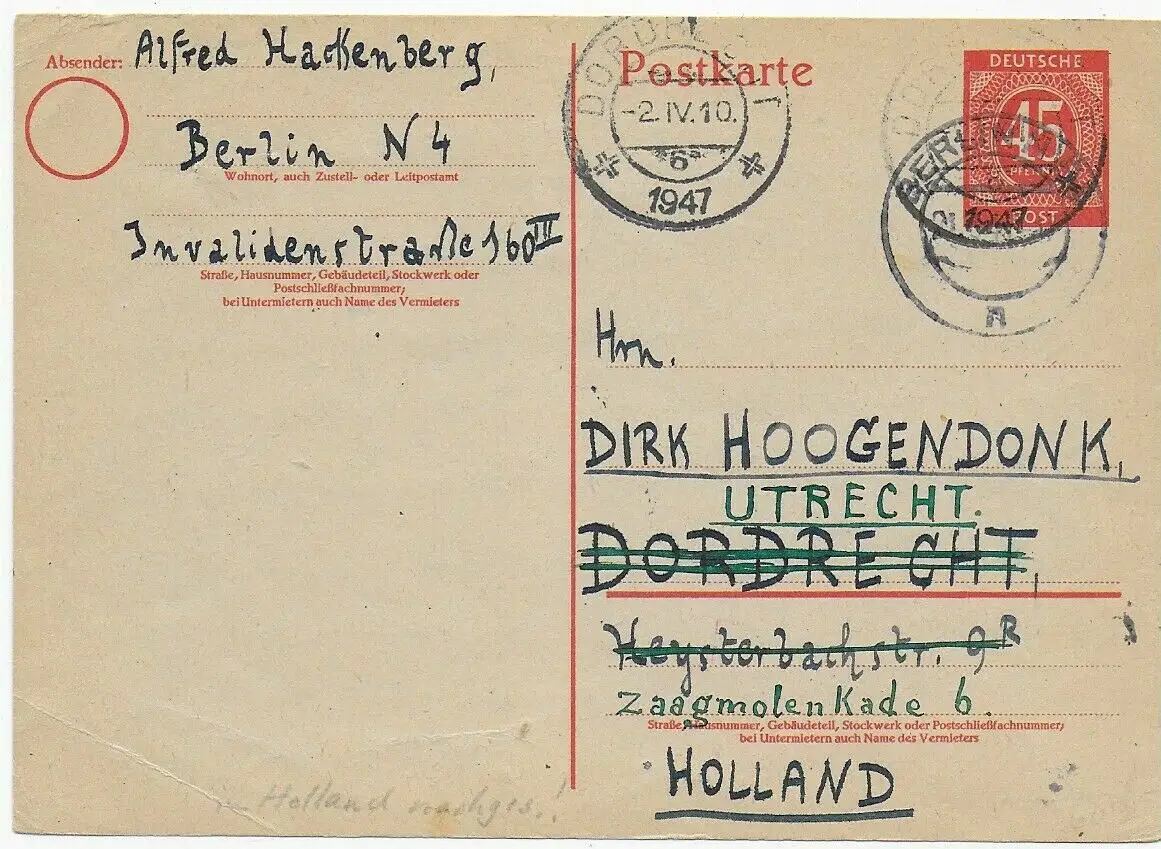 Absender: Alfred Hackenberg,
Berlin N 4
Wohnort, auch Zustell- oder Leitpostamt
Invalidenstraße 160 III
Straße, Hausnummer, Gebäudeteil, Stockwerk oder
Postschließfachnummer;
bei Untermietern auch Name des Vermieters
Postkarte
-2.IV.10.
1947
DEUTSCHE
45
PFENNIG
POST
BERLIN
1947
n
Hrn.
DIRK HOOGENDONK,
UTRECHT.
DORDRECHT,
Heysterbachstr. 9R
Zaagmolenkade 6.
Straße, Hausnummer, Gebäudeteil, Stockwerk oder Postschließfachnummer;
bei Untermietern auch Name des Vermieters
HOLLAND
in Holland nachges.!